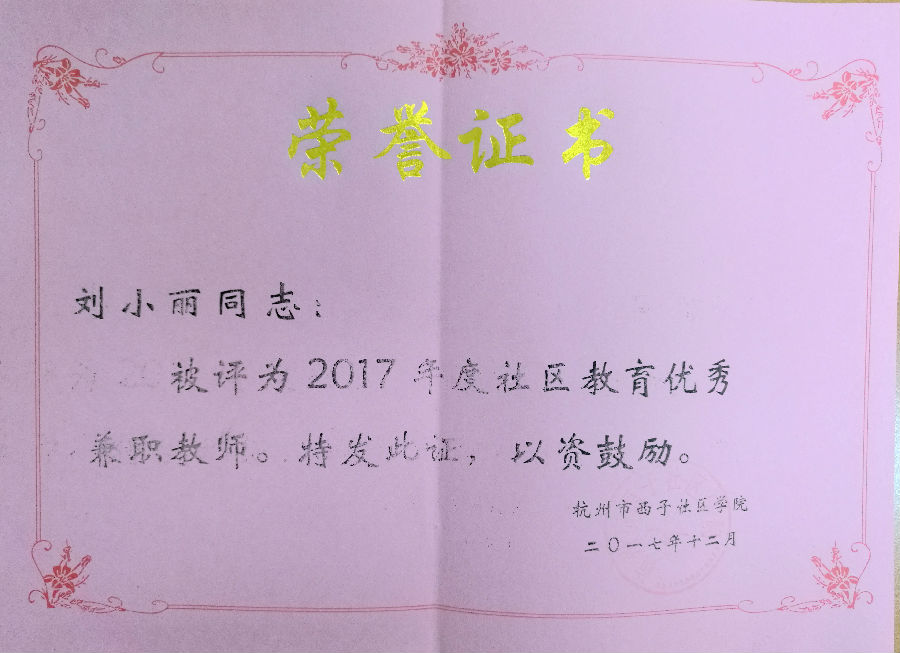 荣誉证书
刘小丽同志：
被评为2017年度社区教育优秀
兼职教师。特发此证，以资鼓励。
杭州市西子社区学院
二〇一七年十二月